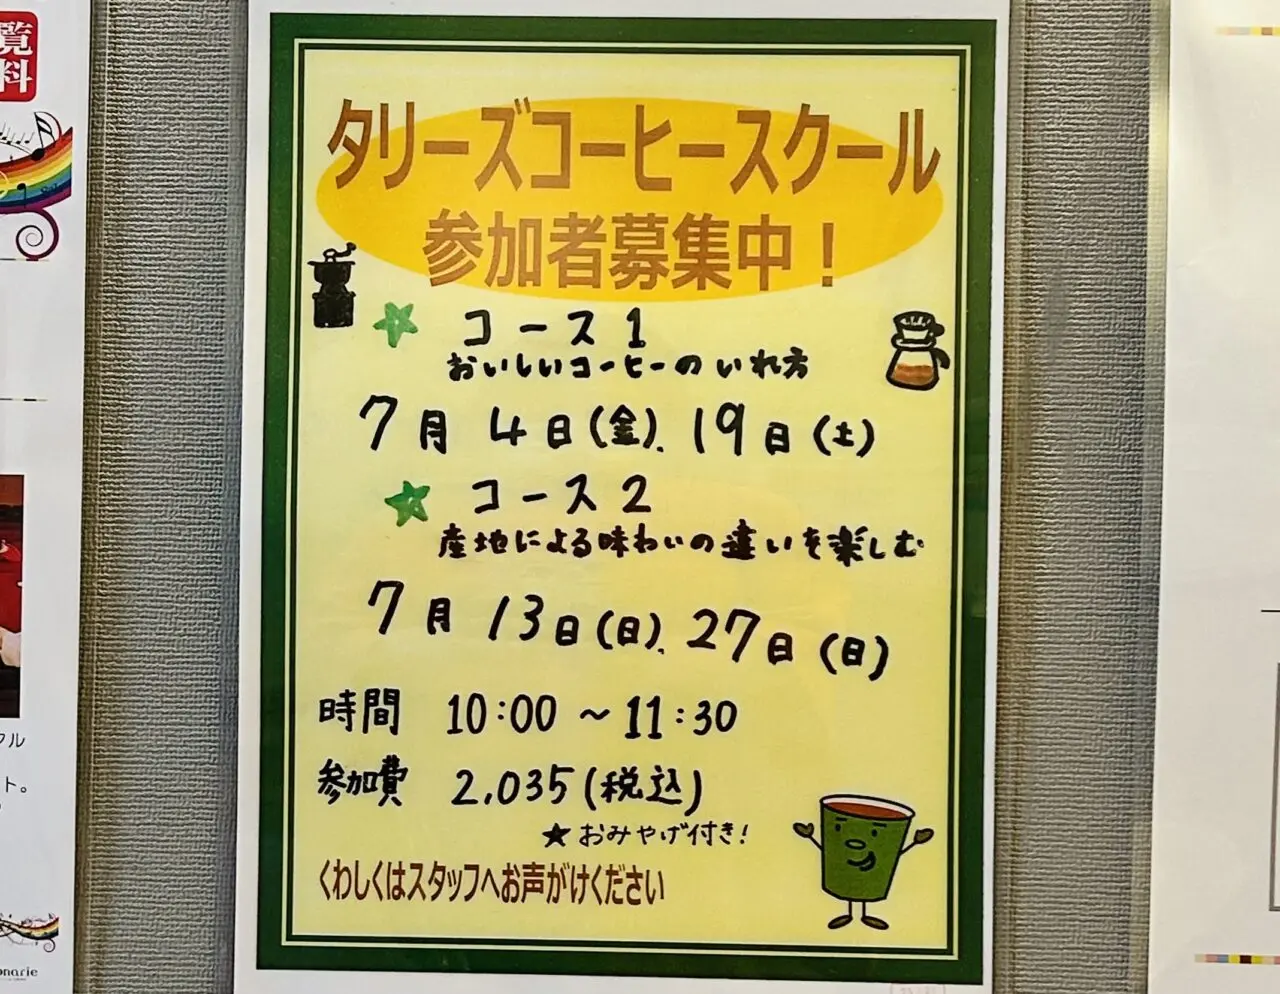 覧
料
タリーズコーヒースクール
参加者募集中！
コース1
おいしいコーヒーのいれ方
7月4日(金)、19日(土)
コース2
産地による味わいの違いを楽しむ
7月13日(日)、27日(日)
時間 10:00～11:30
参加費 2,035(税込)
★おみやげ付き!
くわしくはスタッフへお声がけください
クル
ト。
onarie